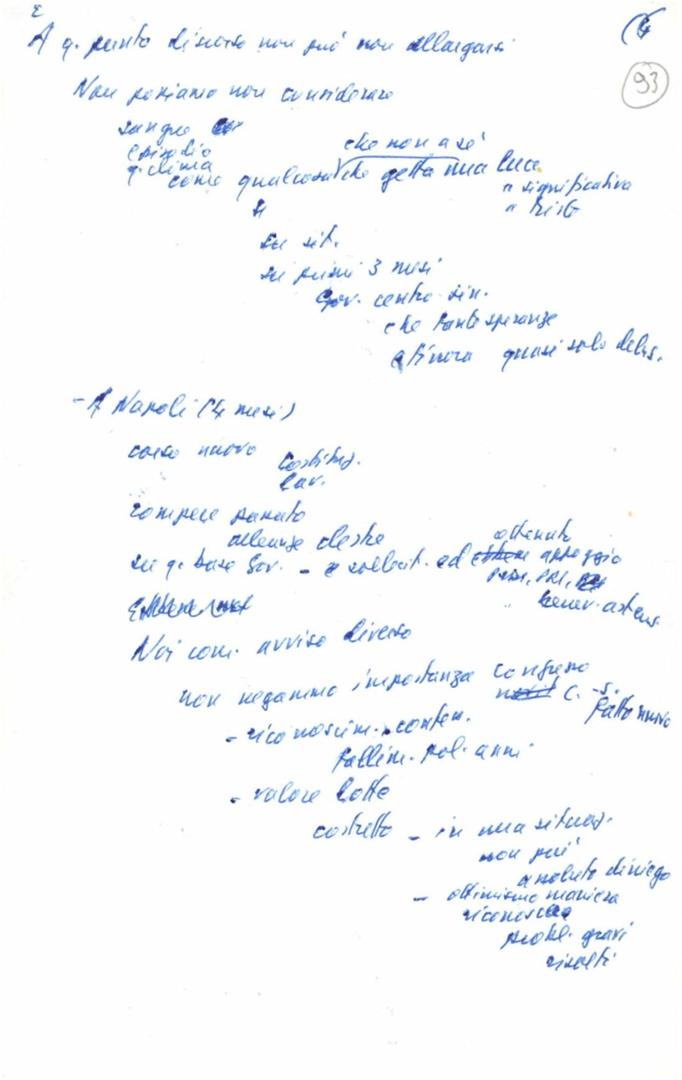 E
A q. punto discorso non può non allargarsi
(4
93
Non possiamo non considerare
sangue
episodio
q. clima
che non a sé
come qualcosa che getta una luce
" significativa
" triste
su sit.
su primi 3 mesi
Gov. centro sin.
che tante speranze
finora quasi solo delus.
- A Napoli (4 mesi)
corso nuovo
Costituz.
Lav.
rompere passato
alleanze destre
ottenuto
su q. base Gov. - e sollecit. ed appoggio
PSDI, PRI,
benev. astens.
Noi com. avviso diverso
non negammo importanza congresso
C. -S.
fatto nuovo
- riconoscim. conten.
fallim. pol. anni
- valore lotte
costretto - in una situaz.
non può
assoluto diniego
- ottimismo maniera
riconoscere
probl. gravi
risolti